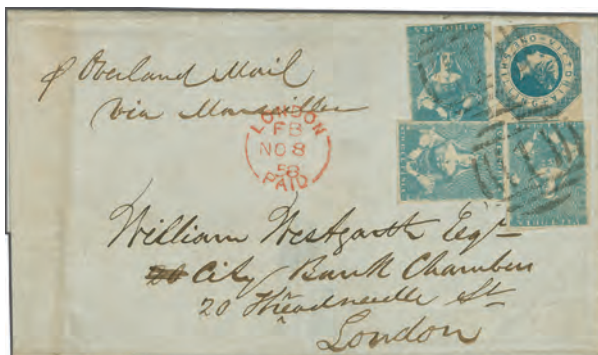 p Overland Mail
via Marseilles
LONDON
FB
NO 8
58
PAID
VICTORIA
VICTORIA
William Westgarth Esqr
20 City Bank Chambers
20 Threadneedle St
London